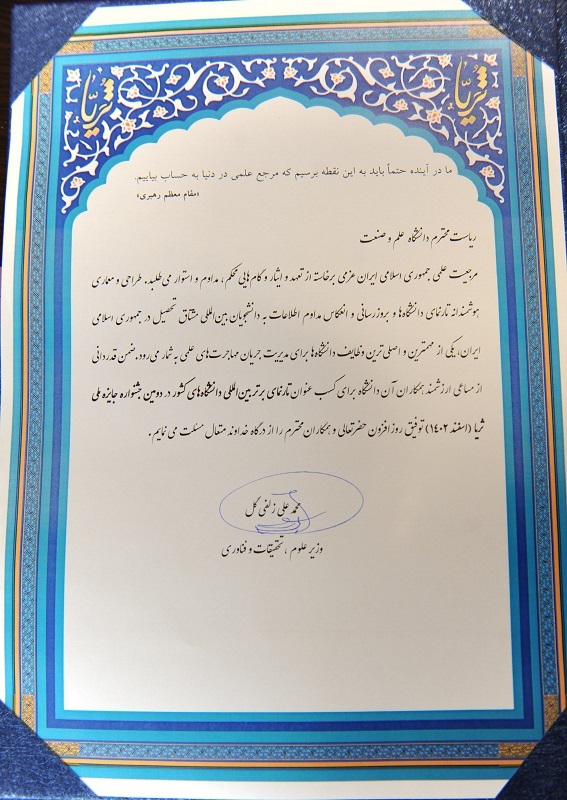 ثریا
ثریا
ما در آینده حتماً باید به این نقطه برسیم که مرجع علمی در دنیا به حساب بیاییم.
«مقام معظم رهبری»
ریاست محترم دانشگاه علم و صنعت
مرجعیت علمی جمهوری اسلامی ایران عزمی برخاسته از تعهد و ایثار و گام‌هایی محکم، مداوم و استوار می‌طلبد. طراحی و معماری
هوشمندانه تارنمای دانشگاه‌ها و بروزرسانی و انعکاس مداوم اطلاعات به دانشجویان بین‌المللی مشتاق تحصیل در جمهوری اسلامی
ایران، یکی از مهمترین و اصلی‌ترین وظایف دانشگاه‌ها برای مدیریت جریان مهاجرت‌های علمی به شمار می‌رود. ضمن قدردانی
از مساعی ارزشمند همکاران آن دانشگاه برای کسب عنوان تارنمای برتر بین‌المللی دانشگاه‌های کشور در دومین جشنواره جایزه ملی
ثریا (اسفند ۱۴۰۲) توفیق روز افزون حضرتعالی و همکاران محترم را از درگاه خداوند متعال مسئلت می نمایم.
محمد علی زلفی گل
وزیر علوم، تحقیقات و فناوری